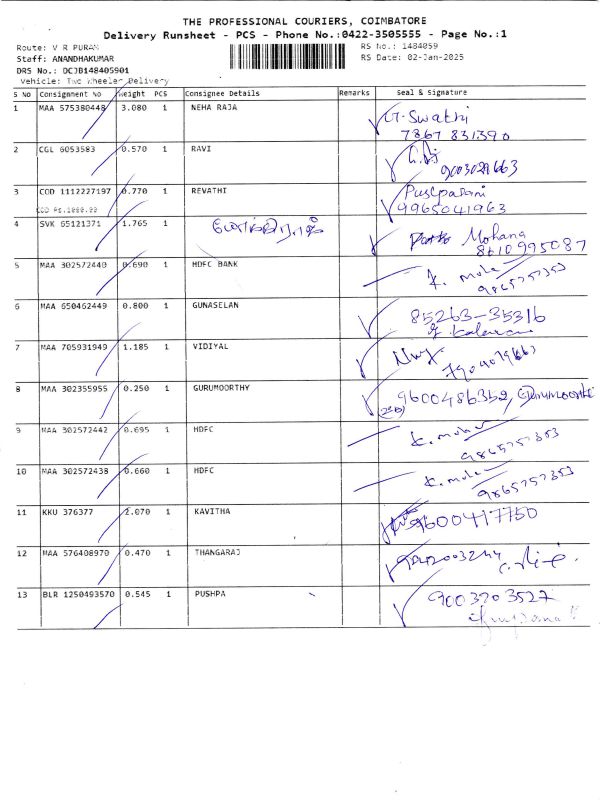 THE PROFESSIONAL COURIERS, COIMBATORE
Delivery Runsheet - PCS - Phone No.:0422-3505555 - Page No.:1
Route: V R PURAM RS No.: 1484059
Staff: ANANDHAKUMAR RS Date: 02-Jan-2025
DRS No.: DCJB148405901
Vehicle: Two Wheeler Delivery
S No Consignment No Weight PCS Consignee Details Remarks Seal & Signature
1 MAA 575380448 3.080 1 NEHA RAJA Swathi
7867 831390
2 CGL 6053583 0.570 1 RAVI
9003029663
3 COD 1112227197 0.770 1 REVATHI Pushpalani
COD Rs.1000.00 9965041963
4 SVK 65121371 1.765 1 Mohana
8610995087
5 MAA 302572440 0.690 1 HDFC BANK K. moha
9865757353
6 MAA 650462449 0.800 1 GUNASELAN 85263-35316
7 MAA 705931949 1.185 1 VIDIYAL
8 MAA 302355955 0.250 1 GURUMOORTHY 9600486352, Gurumoorthi
9 MAA 302572442 0.695 1 HDFC K. moha
9865757353
10 MAA 302572438 0.660 1 HDFC K. moha
9865757353
11 KKU 376377 2.070 1 KAVITHA 9600417750
12 MAA 576408970 0.470 1 THANGARAJ
13 BLR 1250493570 0.545 1 PUSHPA 9003703527